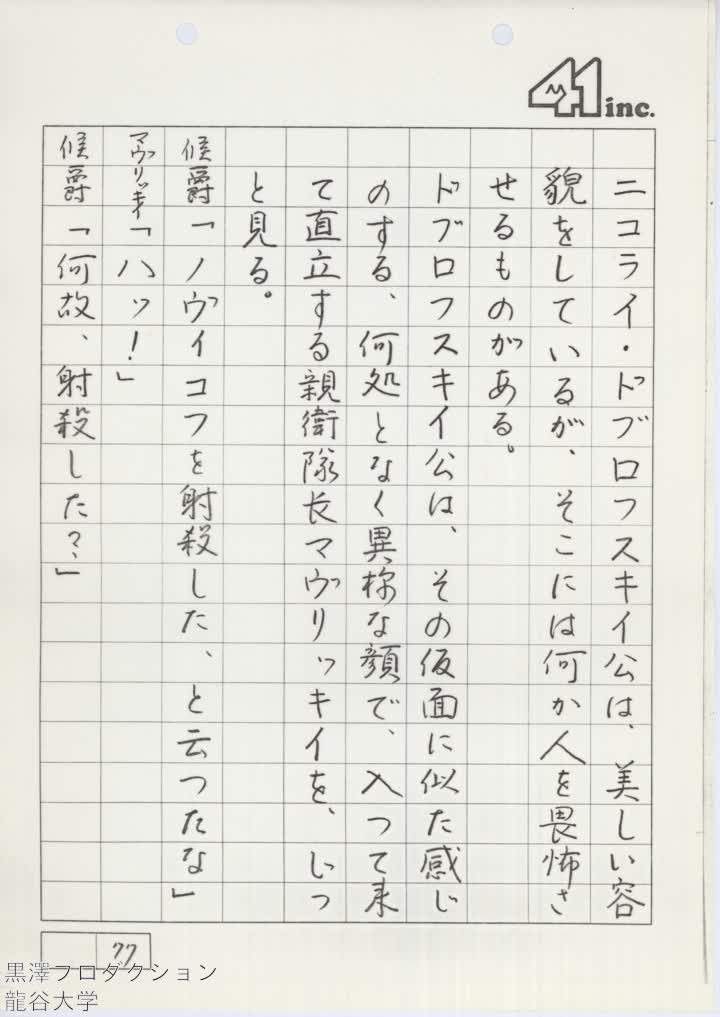 41 inc.
ニコライ・ドブロフスキイ公は、美しい容
貌をしているが、そこには何か人を畏怖さ
せるものがある。
ドブロフスキイ公は、その仮面に似た感じ
のする、何処となく異様な顔で、入つて来
て直立する親衛隊長マヴリッキイを、じっ
と見る。
候爵「ノヴイコフを射殺した、と云つたな」
マヴリッキイ「ハッ!」
候爵「何故、射殺した?」
77
黒澤プロダクション
龍谷大学